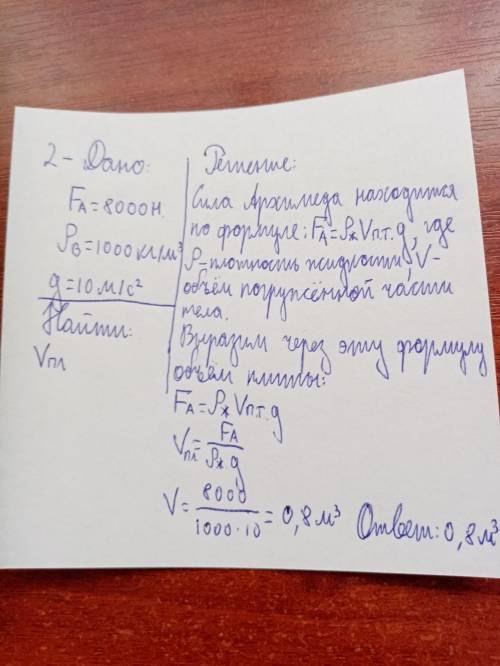 2 - Дано:
F_A = 8000 Н.
ρ_В = 1000 кг/м³
g = 10 м/с²
Найти:
V_пл
Решение:
Сила Архимеда находится
по формуле: F_A = ρ_ж V_п.т. g, где
ρ - плотность жидкости, V -
объём погружённой части
тела.
Выразим через эту формулу
объём плиты:
F_A = ρ_ж V_п.т. g
V_пл = F_A / ρ_ж g
V = 8000 / 1000 · 10 = 0,8 м³
Ответ: 0,8 м³